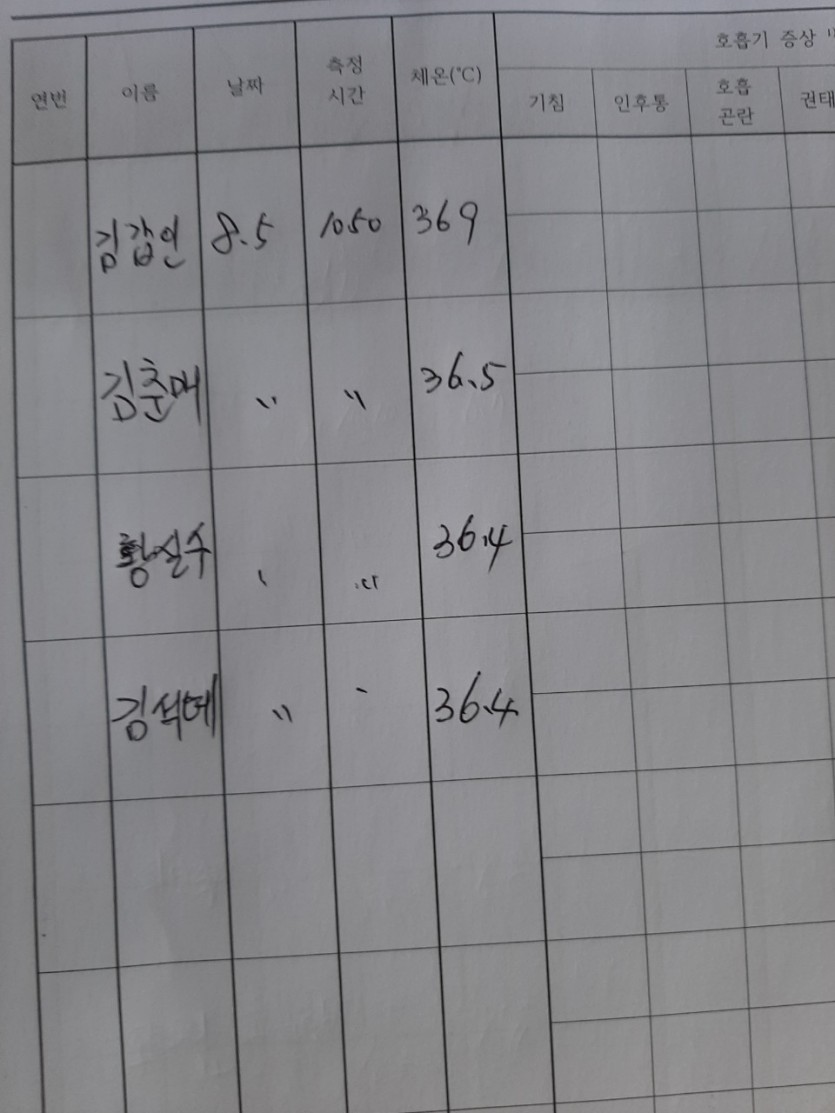 호흡기 증상
연번 이름 날짜 측정 시간 체온(℃) 기침 인후통 호흡 곤란 권태
김갑인 8.5 1050 369
김춘매 〃 〃 36.5
황실수 〃 36.4
김석예 〃 36.4